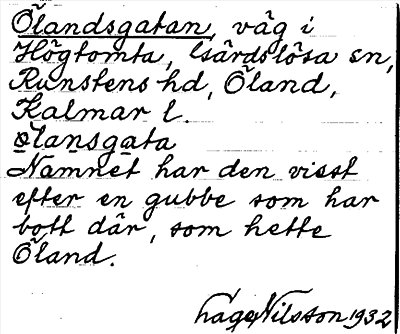 Ölandsgatan, väg i
Högtomta, Gärdslösa sn,
Runstens hd, Öland,
Kalmar l.
ølansgata
Namnet har den visst
efter en gubbe som har
bott där, som hette
Öland.
Hage Nilsson 1932